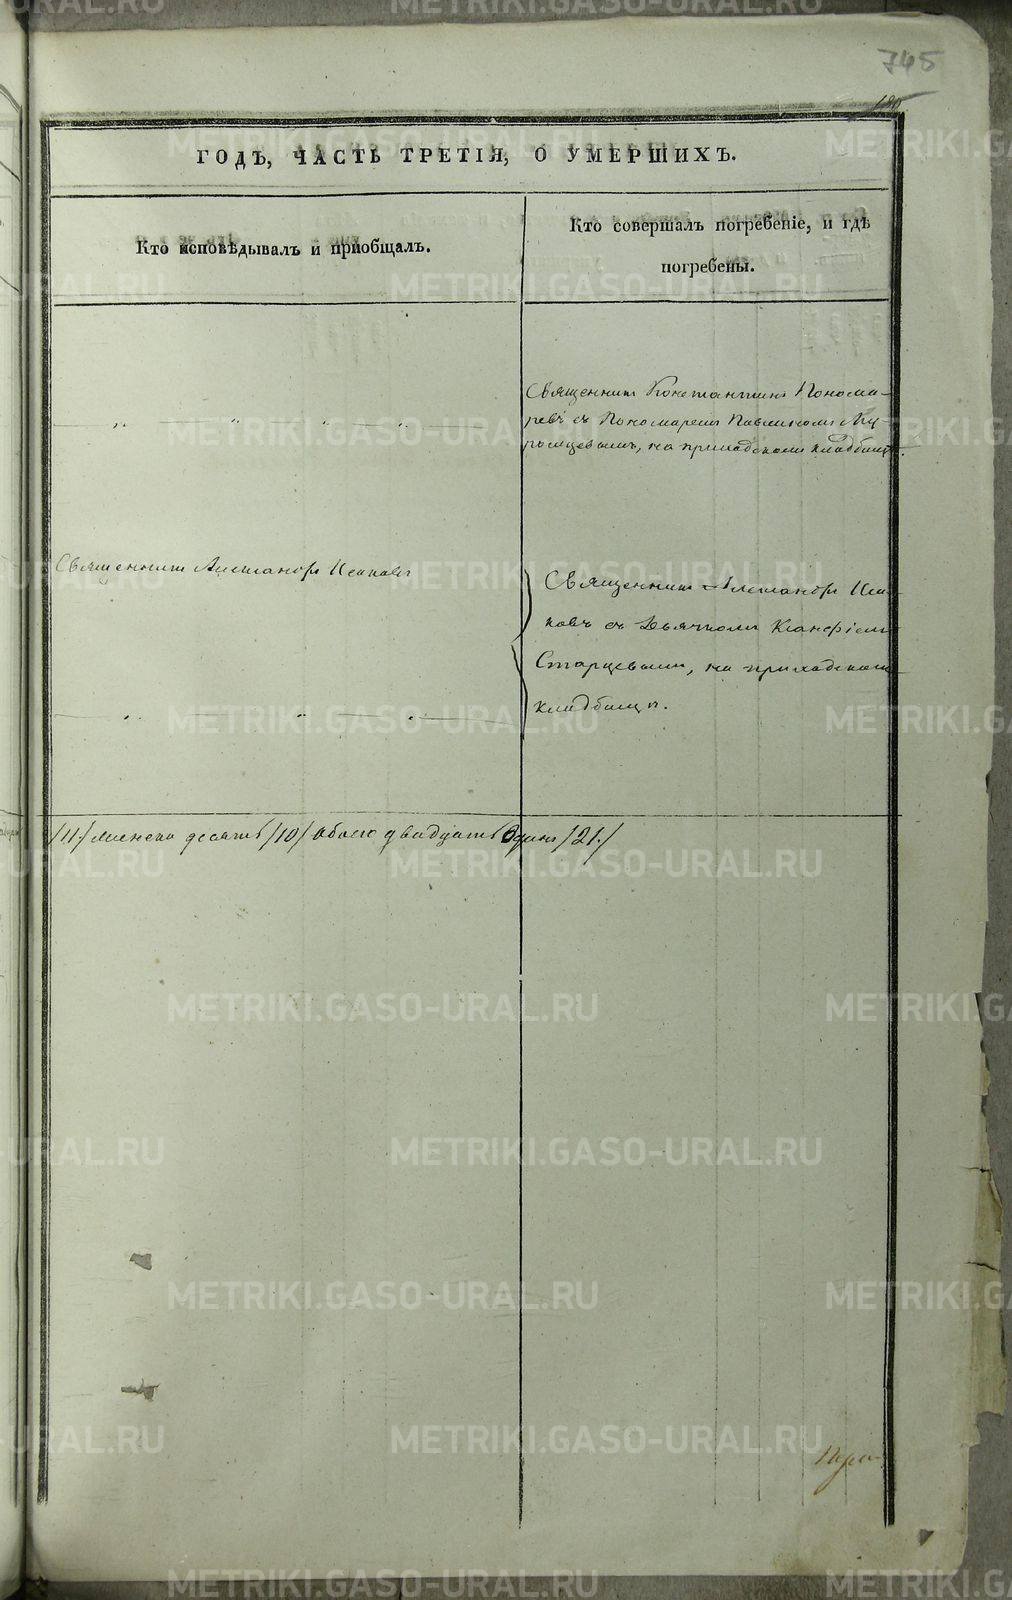 745
180
ГОДЪ, ЧАСТЬ ТРЕТІЯ, О УМЕРШИХЪ.
Кто исповѣдывалъ и пріобщалъ.
Кто совершалъ погребеніе, и гдѣ
погребены.
Священникъ Константинъ Понома-
ревъ съ Пономаремъ Павлиномъ Му-
ромцевымъ, на приходскомъ кладбищѣ.
Священникъ Александръ
Священникъ Александръ
съ Дьячкомъ
Старцевымъ, на приходскомъ
кладбищѣ.
/11./ женска десять /10/ обоего двадцать одинъ /21./
METRIKI.GASO-URAL.RU